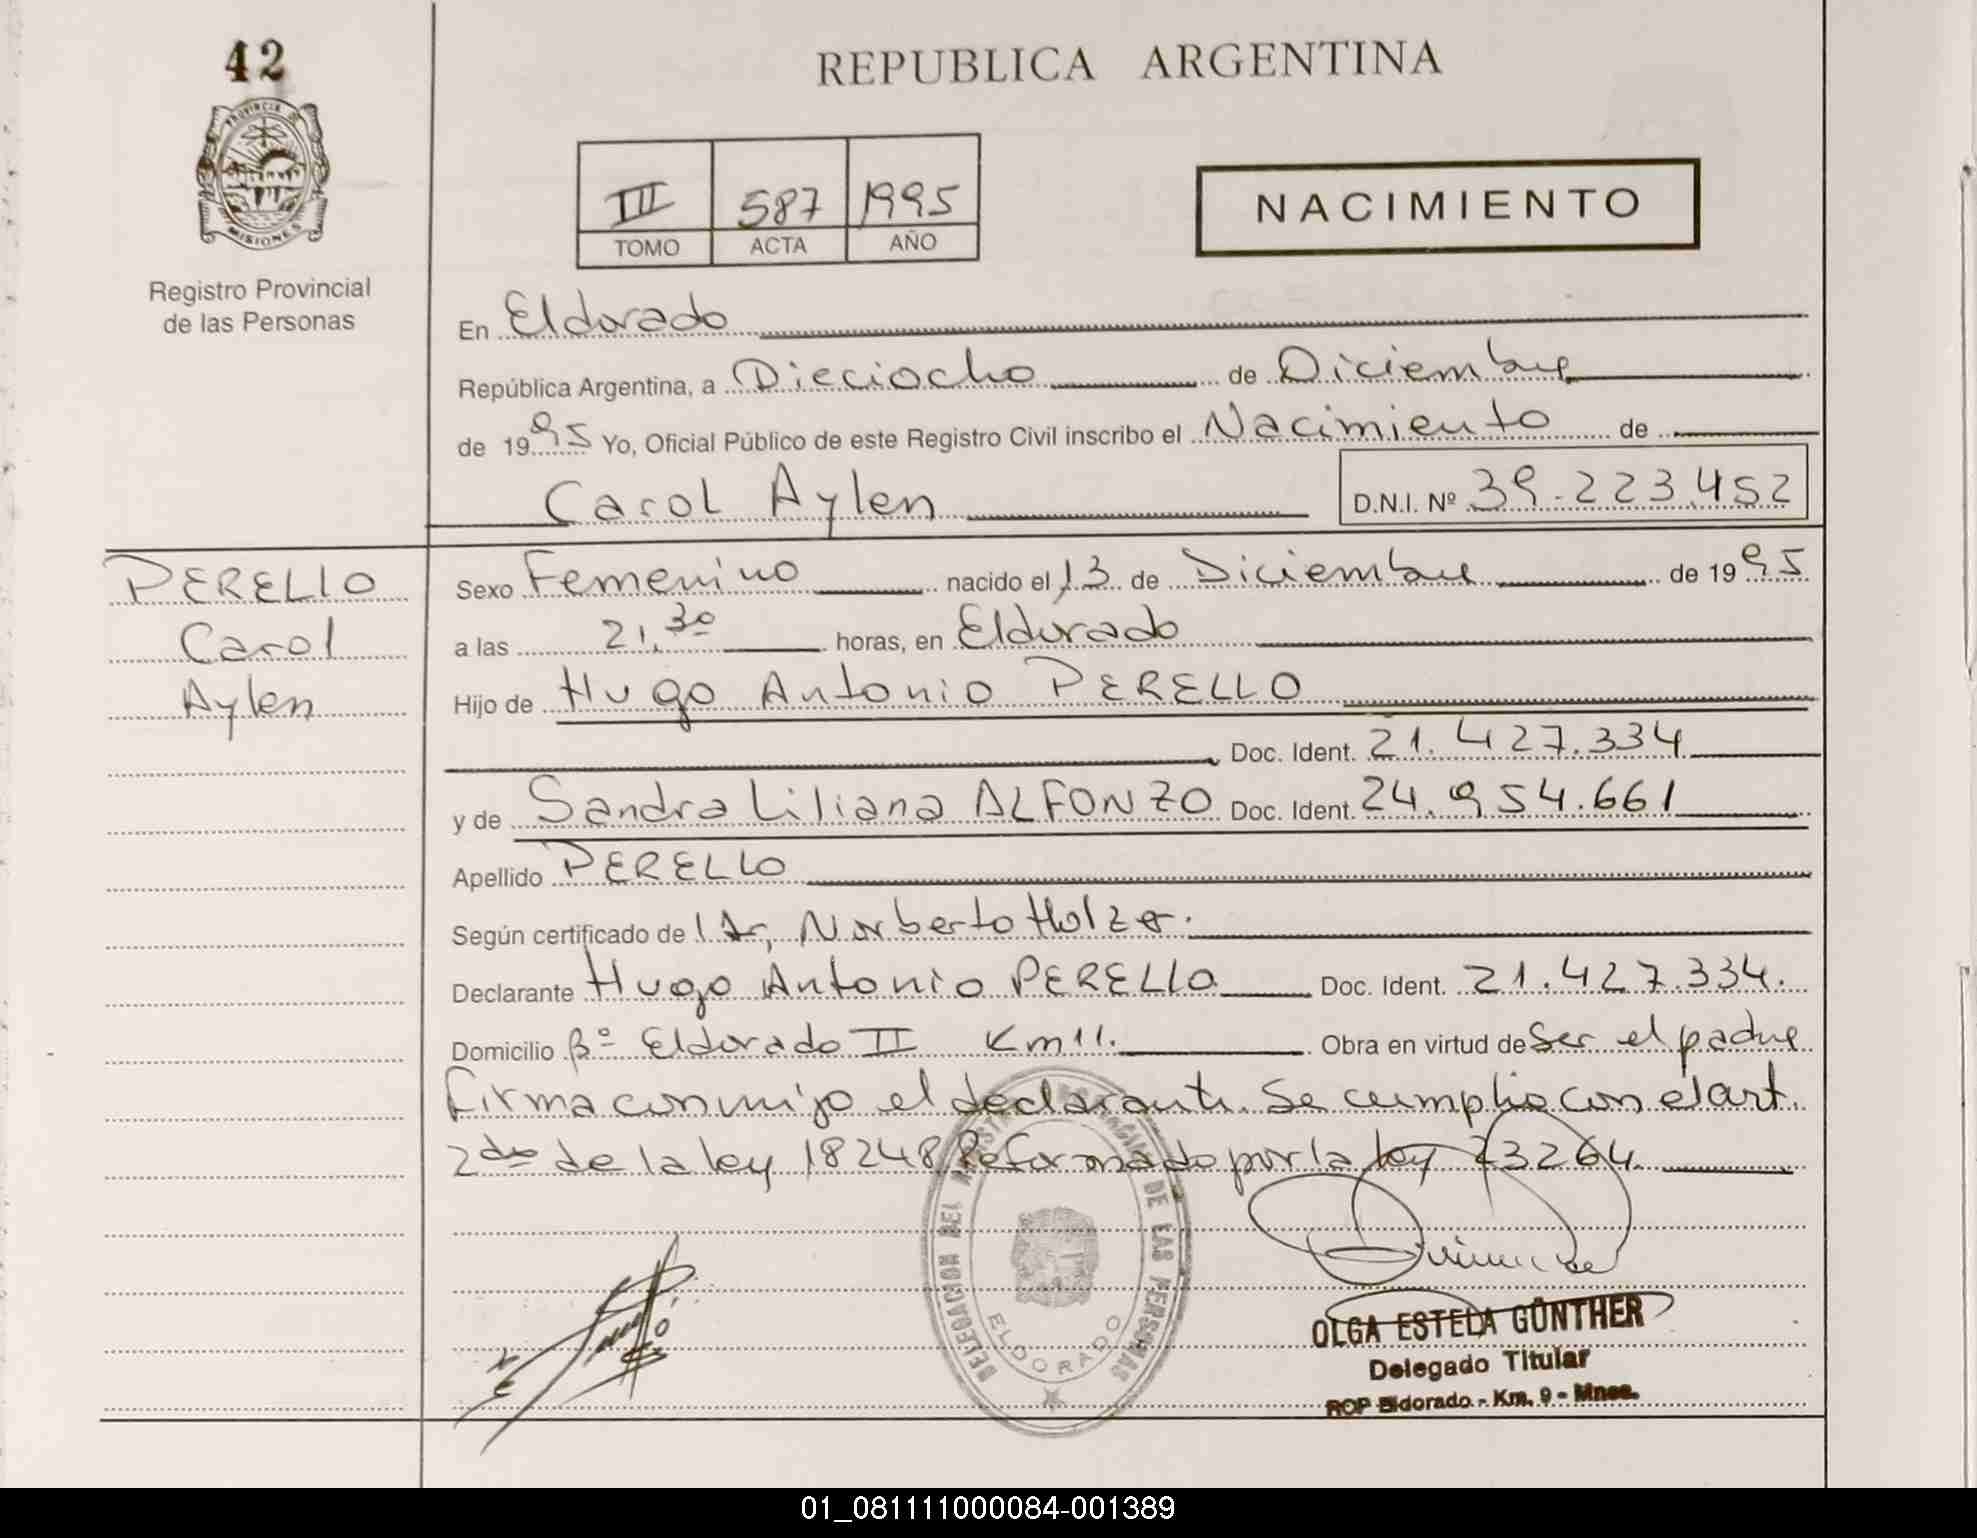 42
REPUBLICA ARGENTINA
PROVINCIA DE
MISIONES
Registro Provincial
de las Personas
III 587 1995
TOMO ACTA AÑO
NACIMIENTO
En Eldorado
República Argentina, a Dieciocho de Diciembre
de 1995 Yo, Oficial Público de este Registro Civil inscribo el Nacimiento de
Carol Aylen
D.N.I. Nº 39.223.452
PERELLO
Carol
Aylen
Sexo Femenino nacido el 13 de Diciembre de 1995
a las 21,30 horas, en Eldorado
Hijo de Hugo Antonio PERELLO
Doc. Ident. 21.427.334
y de Sandra Liliana ALFONZO Doc. Ident. 24.954.661
Apellido PERELLO
Según certificado de Norberto
Declarante Hugo Antonio PERELLO Doc. Ident. 21.427.334.
Domicilio Bº Eldorado II Km 11. Obra en virtud de Ser el padre
Firma conmigo el declarante. Se cumplio con el art.
2do de la ley 18248 Reformado por la ley 23264.
DELEGACION DEL REGISTRO PROVINCIAL DE LAS PERSONAS
ELDORADO
OLGA ESTELA GÜNTHER
Delegado Titular
RCP Eldorado - Km. 9 - Mnes.
01_081111000084-001389